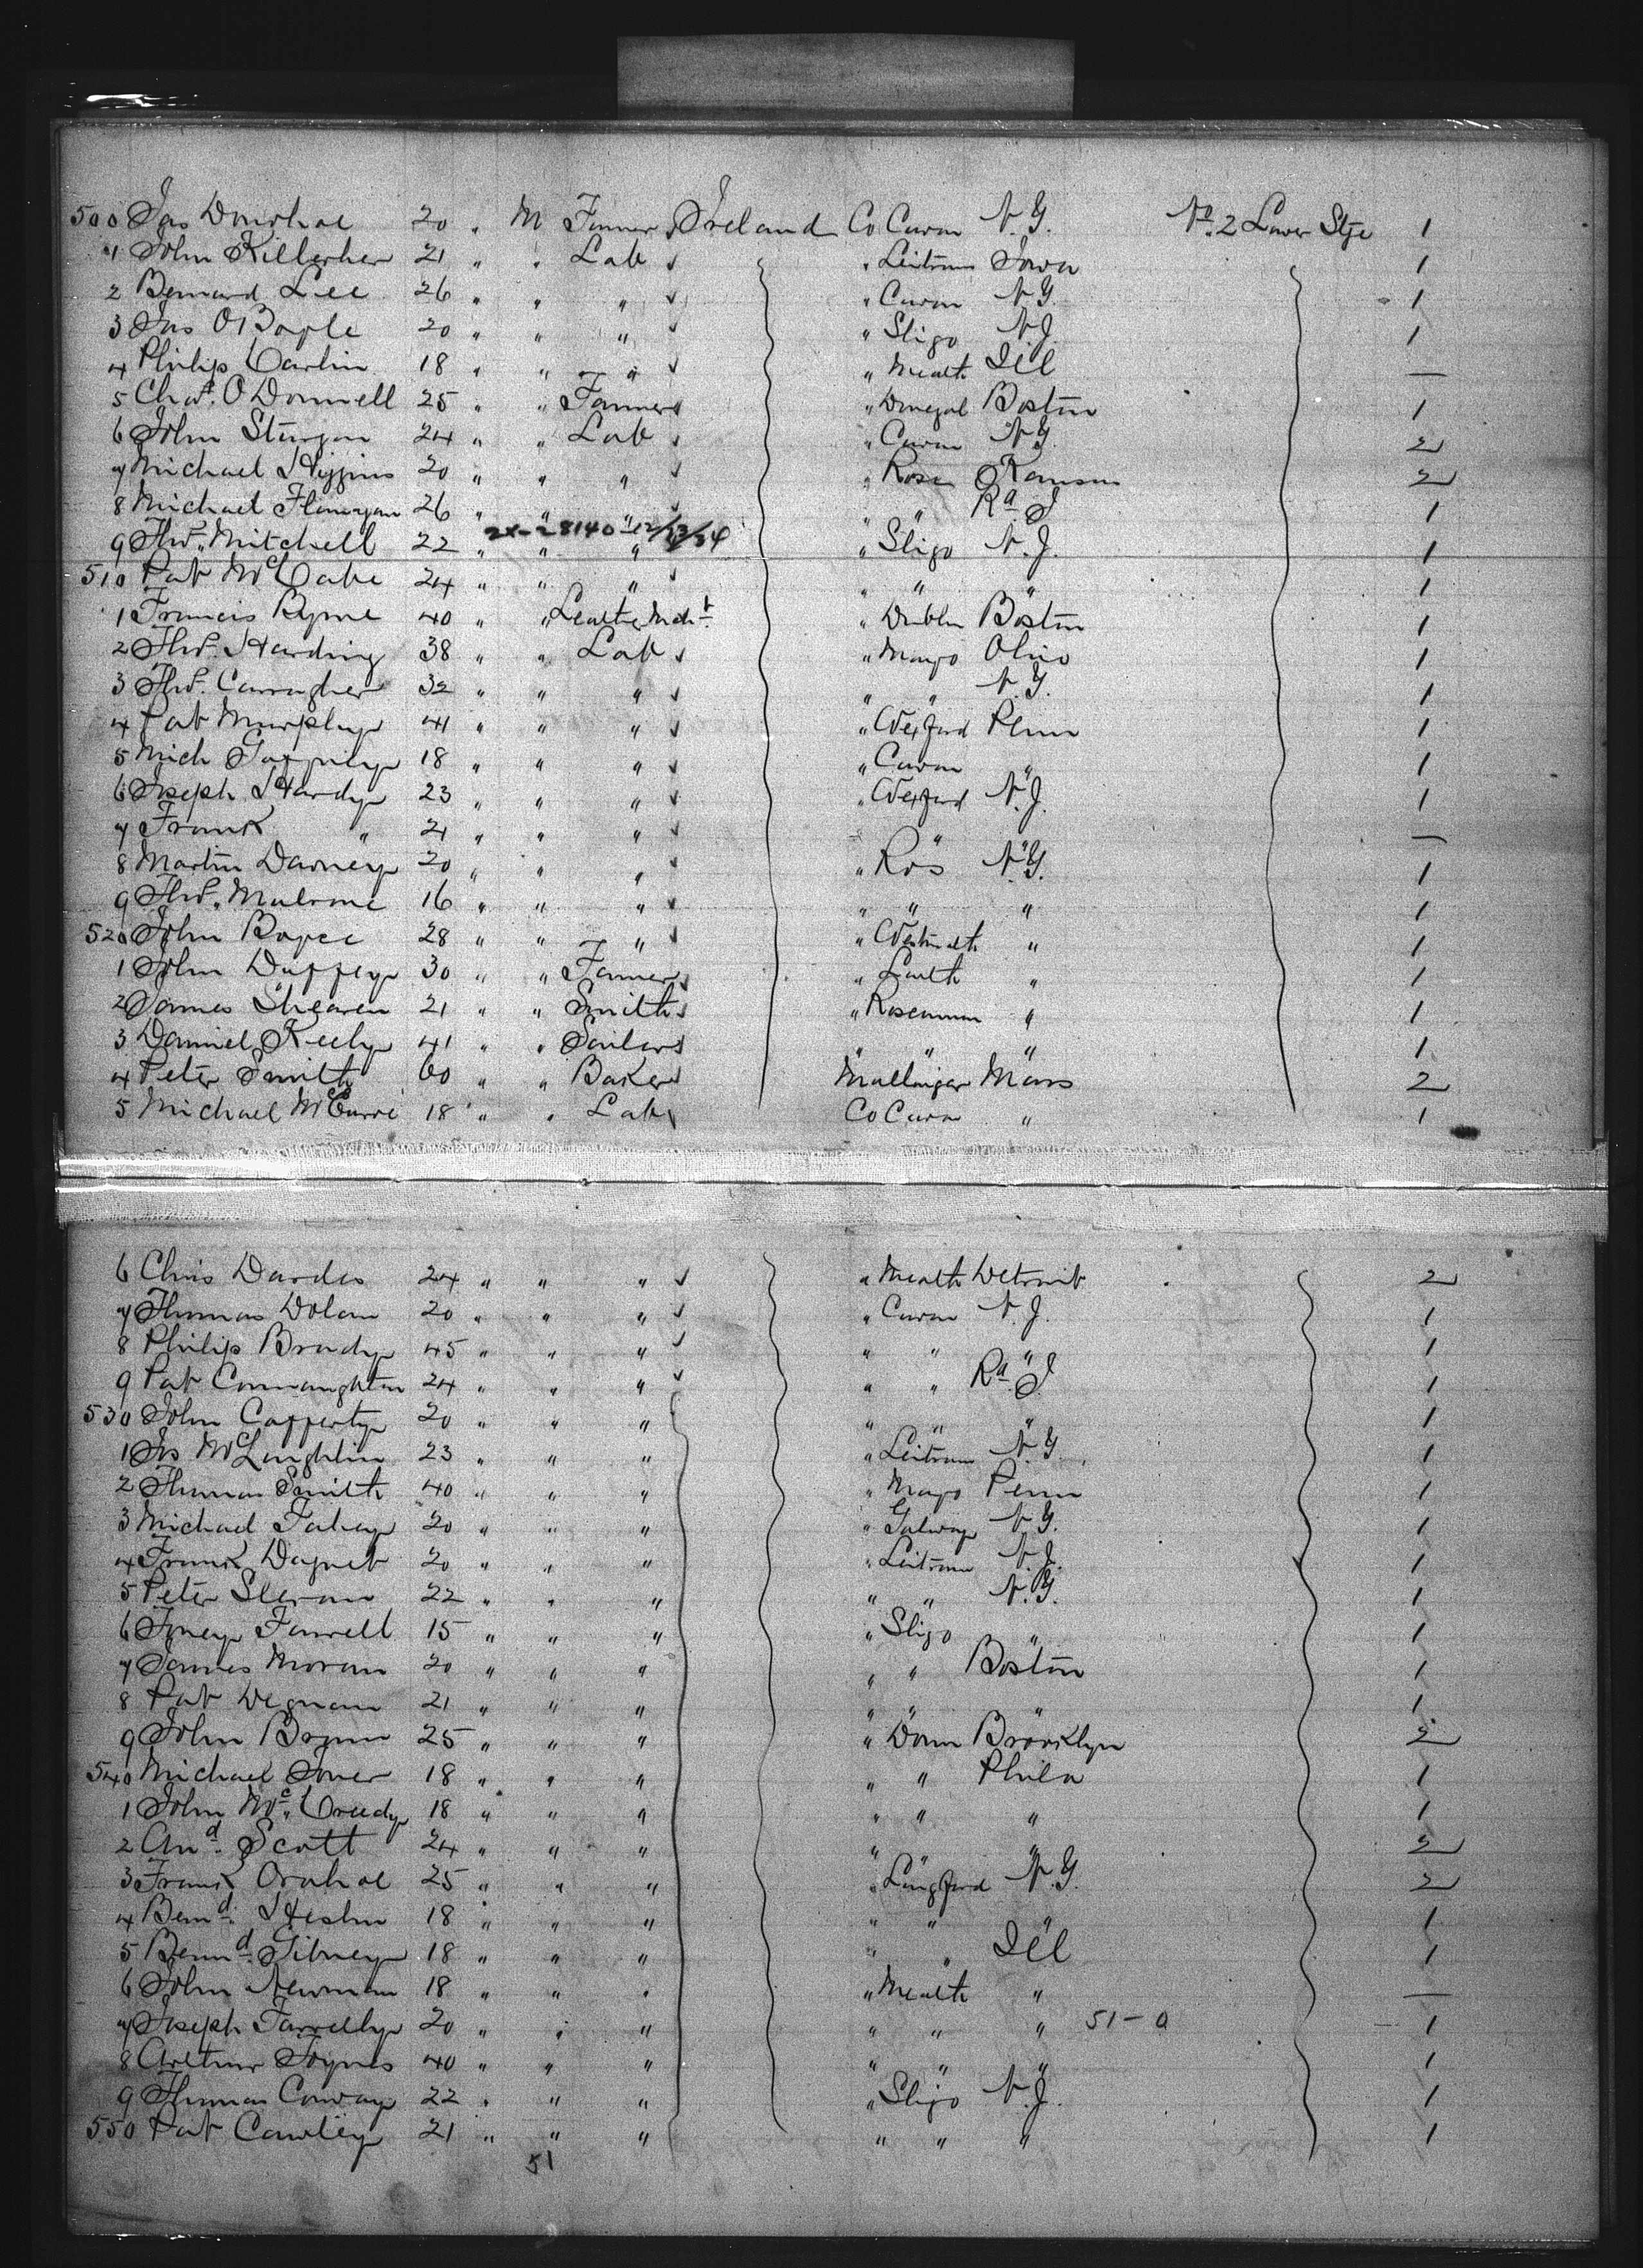 500 Jas Donohoe 20 " M Farmer Ireland Co Cavan N.Y. No. 2 Lower Stge 1
1 John Killerher 21 " " Lab " Leitrim Iowa 1
2 Bernard Lee 26 " " " " Cavan N.Y. 1
3 Jas O'Boyle 20 " " " " Sligo N.J. 1
4 Philip Carlin 18 " " " " Meath Ill —
5 Chas. O'Donnell 25 " " Farmer " Donegal Boston 1
6 John Sturgon 24 " " Lab " Cavan N.Y. 2
7 Michael Higgins 20 " " " " Rosc Kansas 2
8 Michael Flanigan 26 " " " " " Rd I 1
2x-28140 12/13/34
9 Thos. Mitchell 22 " " " " Sligo N.J. 1
510 Pat McCabe 24 " " " " " " 1
1 Francis Byrne 40 " " Leather Mcht. " Dublin Boston 1
2 Thos. Harding 38 " " Lab " Mayo Ohio 1
3 Thos. Carragher 32 " " " " " N.Y. 1
4 Pat Murphy 41 " " " " Wexford Penn 1
5 Mich Gaffney 18 " " " " Cavan " 1
6 Joseph Hardy 23 " " " " Wexford N.J. 1
7 Frank " 21 " " " " " " —
8 Martin Darney 20 " " " " Ros N.Y. 1
9 Thos. Malone 16 " " " " " " 1
520 John Boyce 28 " " " " Westmeath " 1
1 John Duffey 30 " " Farmer " Louth " 1
2 James Shearen 21 " " Smith " Roscommon " 1
3 Daniel Keely 41 " " Sailor " " " 1
4 Peter Smith 60 " " Baker Mullingar Mass 2
5 Michael 18 " " Lab Co Cavan " 1
6 Chris Dardes 24 " " " " Meath Detroit 2
7 Thomas Dolan 20 " " " " Cavan N.J. 1
8 Philip Brady 45 " " " " " " 1
9 Pat Connaughton 24 " " " " " Rd I 1
530 John Cafferty 20 " " " " " " 1
1 Jas McLoughlin 23 " " " " Leitrim N.Y. 1
2 Thomas Smith 40 " " " " Mayo Penn 1
3 Michael Fahey 20 " " " " Galway N.Y. 1
4 Frank Dagnet 20 " " " " Leitrim N.J. 1
5 Peter 22 " " " " " N.Y. 1
6 Farrell 15 " " " " Sligo " 1
7 James Moran 20 " " " " " Boston 1
8 Pat Degnan 21 " " " " " " 1
9 John 25 " " " " Down Brooklyn 2
540 Michael 18 " " " " " Phila 1
1 John McCreedy 18 " " " " " " 1
2 And. Scott 24 " " " " " " 2
3 Frank 25 " " " " Longford N.Y. 2
4 Bernd. Heslin 18 " " " " " " 1
5 Bernd. Gibney 18 " " " " " Ill 1
6 John Newman 18 " " " " Meath " —
7 Joseph Farrelly 20 " " " " " " 51-a 1
8 Arthur 40 " " " " " " 1
9 Thomas Conway 22 " " " " Sligo N.J. 1
550 Pat Cawley 21 " " " " " " 1
51